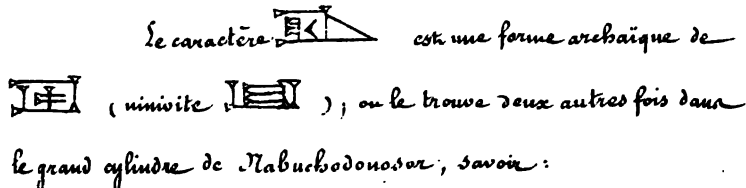 Le caractère est une forme archaïque de
(ninivite ); on le trouve deux autres fois dans
le grand cylindre de Nabuchodonosor, savoir :